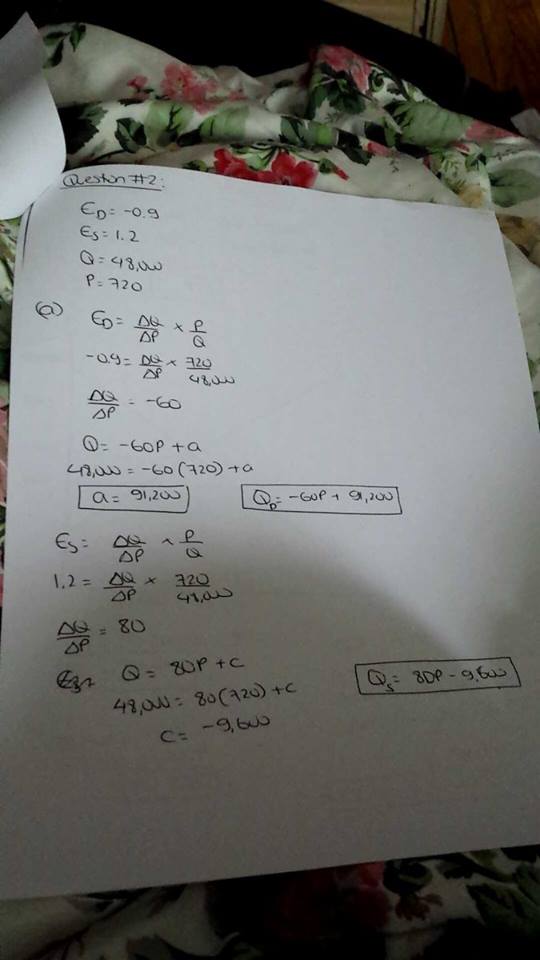 Question #2:
ED = -0.9
ES = 1.2
Q = 48,000
P = 720
(a) ED = ΔQ/ΔP × P/Q
-0.9 = ΔQ/ΔP × 720/48,000
ΔQ/ΔP = -60
Q = -60P + a
48,000 = -60(720) + a
a = 91,200 QD = -60P + 91,200
ES = ΔQ/ΔP × P/Q
1.2 = ΔQ/ΔP × 720/48,000
ΔQ/ΔP = 80
Q = 80P + c QS = 80P - 9,600
48,000 = 80(720) + c
c = -9,600